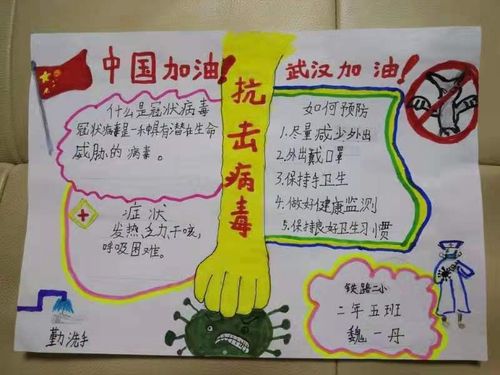 中国加油!
武汉加油!
抗击病毒
什么是冠状病毒
冠状病毒是一种具有潜在生命
威胁的病毒。
症状
发热乏力干咳,
呼吸困难。
如何预防
1.尽量减少外出
2.外出戴口罩
3.保持手卫生
4.做好健康监测
5.保持良好卫生习惯
勤洗手
铁路二小
二年五班
魏一丹